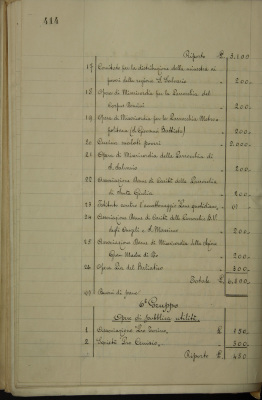 414
Riporto £ 3.100
17 Comitato per la distribuzione delle minestre ai
poveri della regione S. Salvario " 200.
18 Opera di Misericordia per la Parrocchia del
Corpus Domini " 200.
19 Opera di Misericordia per la Parrocchia Metro-
politana (S. Giovanni Battista) " 200.
20 Cucine malati poveri " 2.000.
21 Opera di Misericordia della Parrocchia di
S. Salvario " 200.
22 Associazione Dame di Carità della Parrocchia
di Santa Giulia " 200.
23 Istituto contro l'accattonaggio Pane quotidiano
24 Associazione Dame di Carità della Parrocchia
degli Angeli e S. Massimo " 200.
25 Associazione Dame di Misericordia della
Gran Madre di Dio " 200.
26 Opera Pia del 300.
Totale £
27 Buoni di pane
6° Gruppo
Opere di pubblica utilità
1 Associazione Pro Torino £ 150.
2 Società Pro " 300.
Riporto £ 450